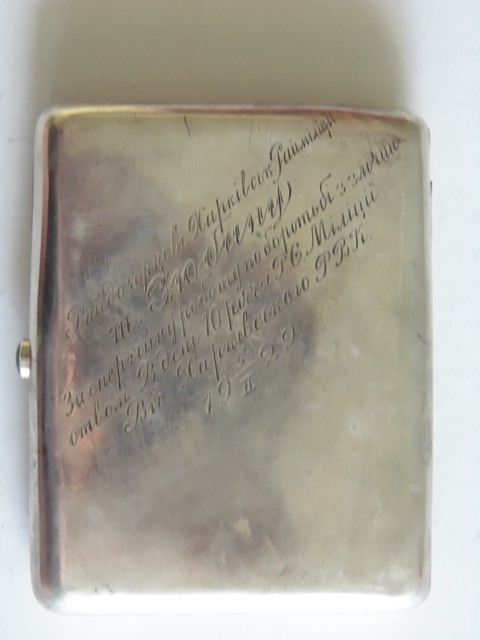 Харківськ Райміліції
т.
За енергічну роботу по боротьбі з злочин
ством В день 10 річчя Р.С. Міліції
Від Харківського РВК.
19 5/II 29